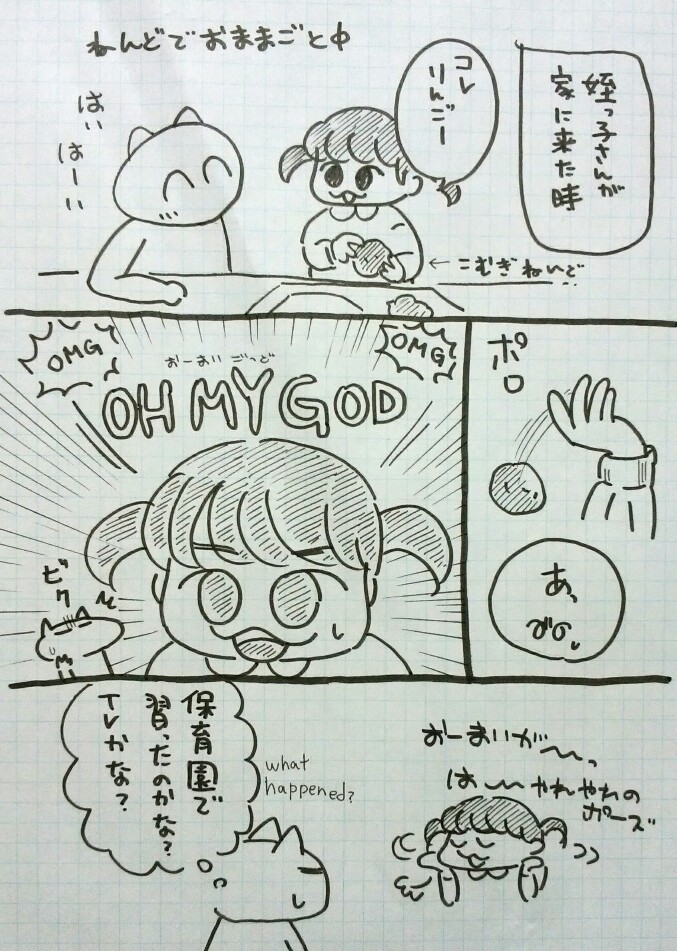 姪っ子さんが
家に来た時
ねんどでおままごと中
コレ
りんごー
はい
はーい
←こむぎねんど
ポロ
あっ
OMG
OMG
おーまい ごっど
OH MY GOD
ビクッ
保育園で
習ったのかな?
TVかな?
what
happened?
おーまいがーっ
はーやれやれの
ポーズ